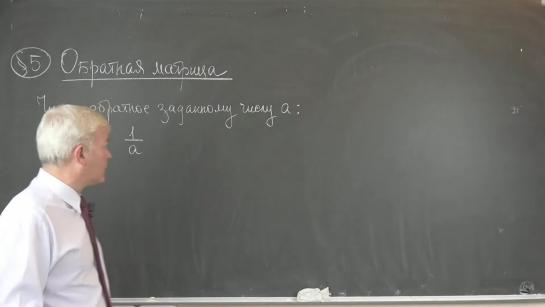 §5 Обратная матрица
обратное заданному числу a:
1/a